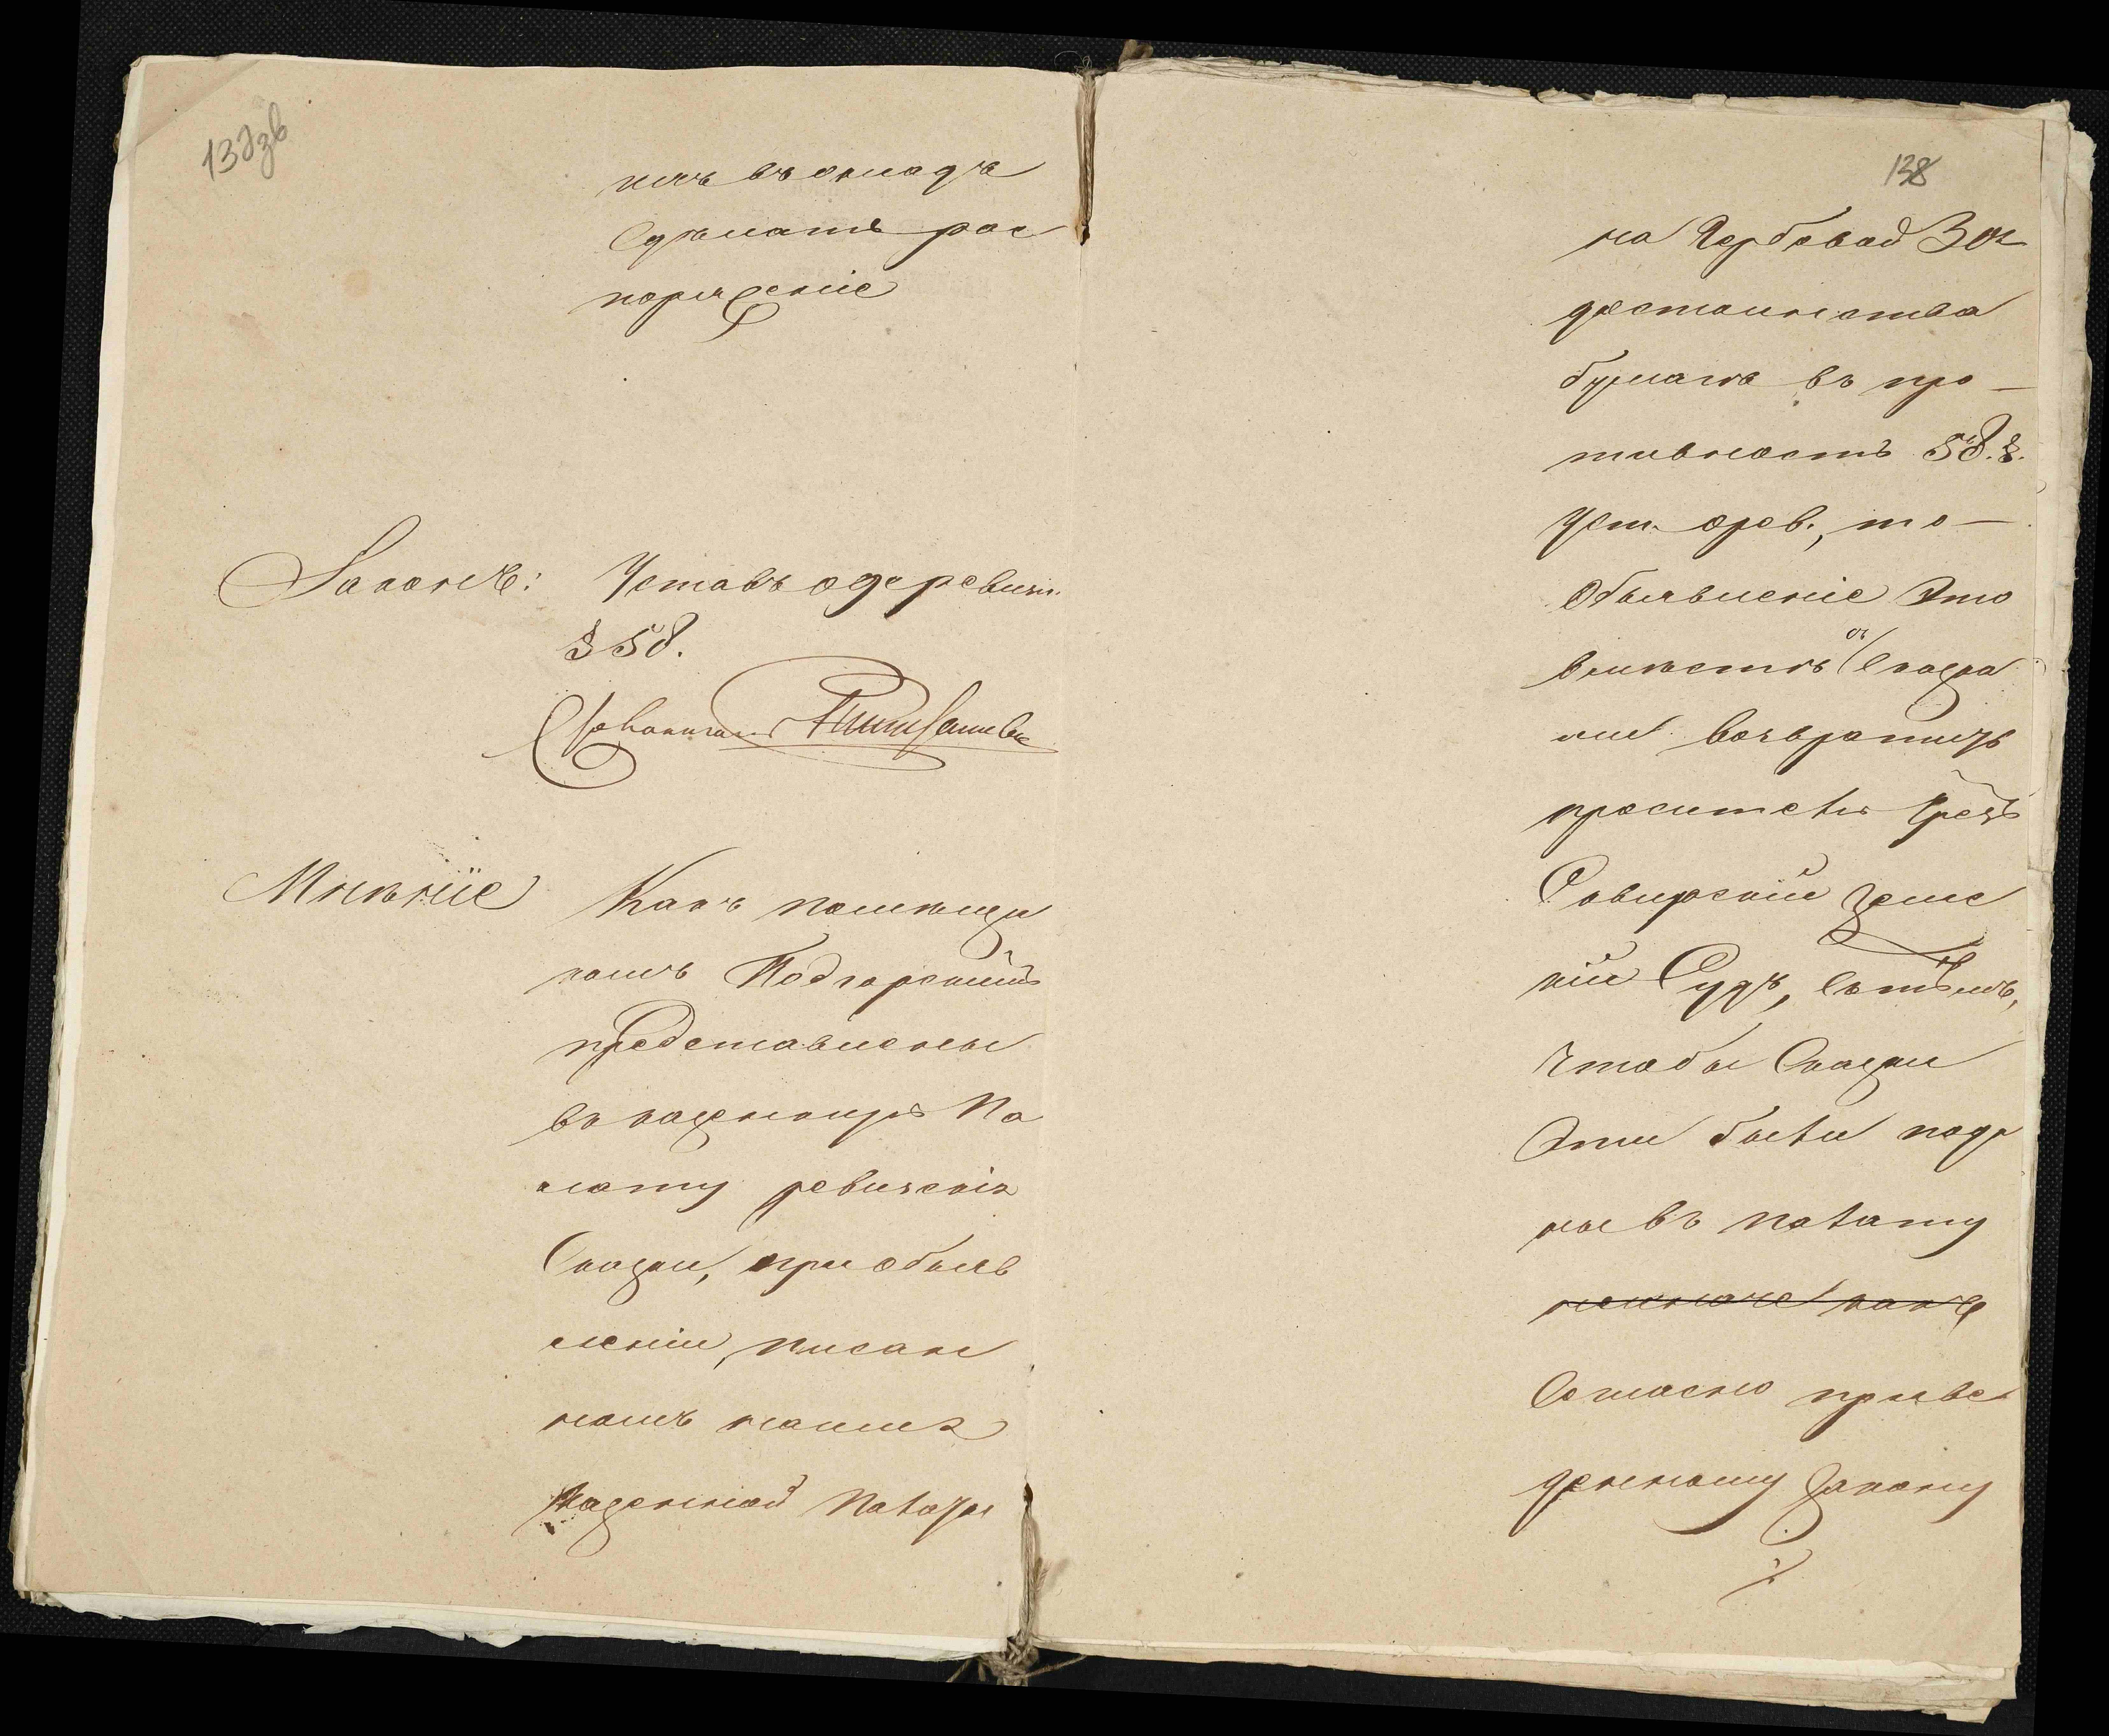 137зв
ихъ въ окладъ
Сдѣлать рас
поряженіе
Законъ: Уставъ о 9й ревизіи.
§ 58.
Мнѣніе Какъ помѣщи
комъ Подгорскимъ
представлены
въ казенную Па
лату ревизскія
Сказки, при объяв
леніи, писан
номъ на имя
Казенной Палаты
138
на Гербовой 30к
достоинства
бумагѣ въ про—
тивность 58. §.
Уст. о рев., то—
Объявленіе Это
вмѣстѣ съ Сказка
ми возвратить
просителю чрезъ
Сквирскій Земс
кій Судъ, съ тѣмъ,
Чтобы Сказки
Эти были пода
ны въ палату
неиначе какъ
Согласно приве
денному Закону